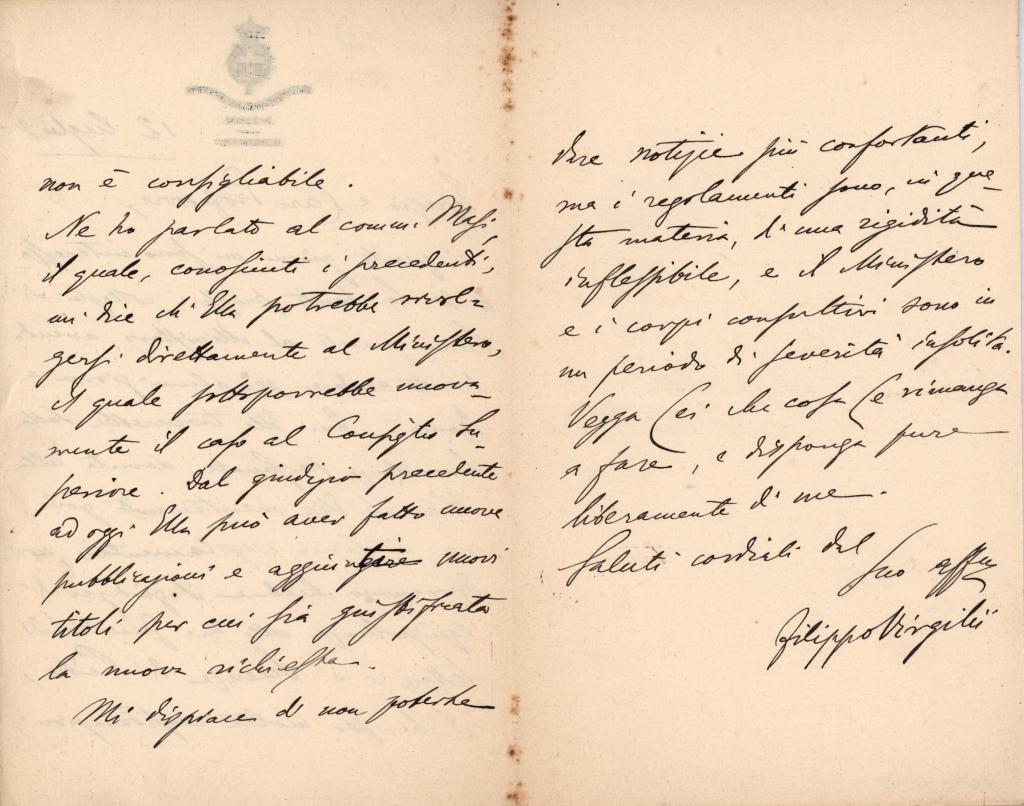 non è consigliabile.
Ne ho parlato al comm. Masi,
il quale, conosciuti i precedenti,
mi dice ch'Ella potrebbe rivol=
gersi direttamente al Ministero,
il quale sottoporrebbe nuova-
mente il caso al Consiglio Su-
periore. Dal giudizio precedente
ad oggi Ella può aver fatto nuove
pubblicazioni e aggiungere nuovi
titoli per cui sia giustificata
la nuova richiesta.
Mi dispiace di non poterle
dare notizie più confortanti,
ma i regolamenti sono, in que-
sta materia, d'una rigidità
inflessibile, e il Ministero
e i corpi consultivi sono in
un periodo di severità insolita.
Vegga Lei che cosa Le rimanga
a fare, e disponga pure
liberamente di me.
Saluti cordiali dal
Suo affmo
Filippo Virgilii